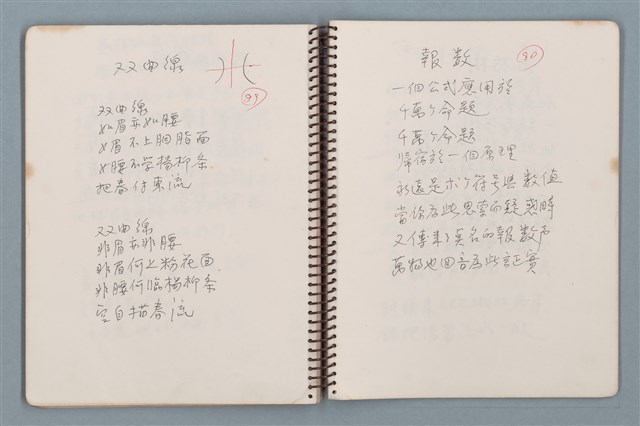 双曲線
89
双曲線
如眉亦如腰
如眉不上胭脂面
如腰不学楊柳条
把春付東流
双曲線
非眉亦非腰
非眉何上粉花面
非腰何臨楊柳条
空自描春流
報数
90
一個公式應用於
千萬个命題
千萬个命題
歸宿於一個原理
永遠是求个符号與数值
當你為此思索而疑惑時
又傳來了莫名的報数声
萬物也回音為此証實